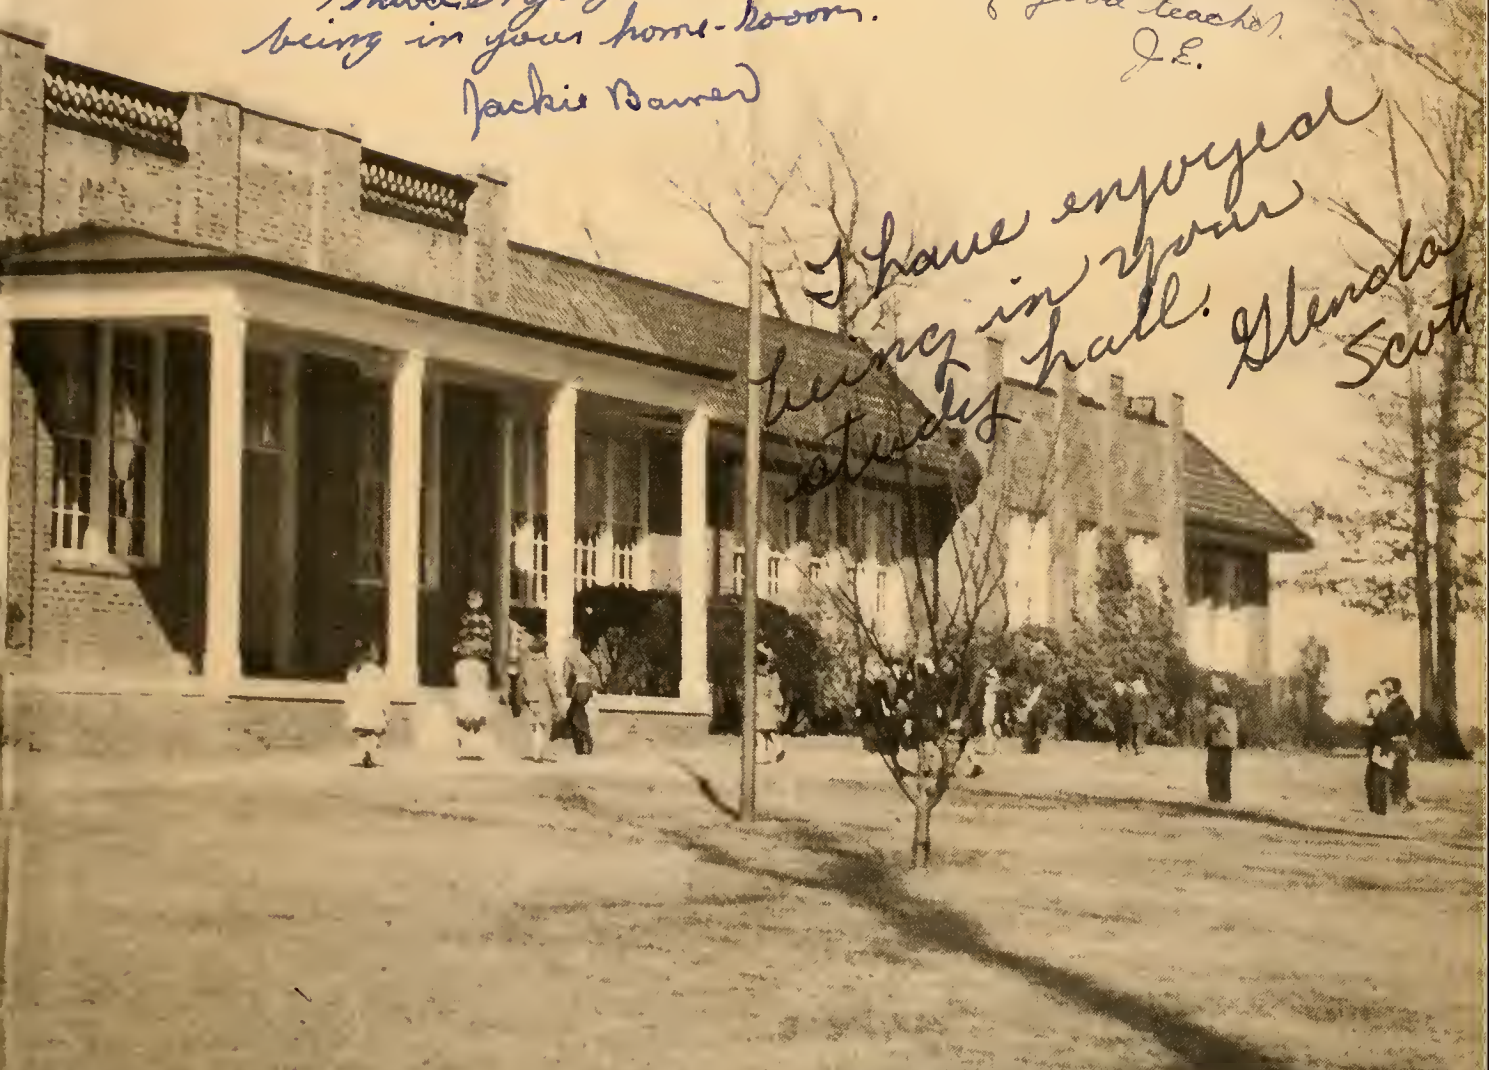 being in your home-room.
Jackie
good teacher.
J.E.
I have enjoyed
being in your
study hall.
Glenda
Scott